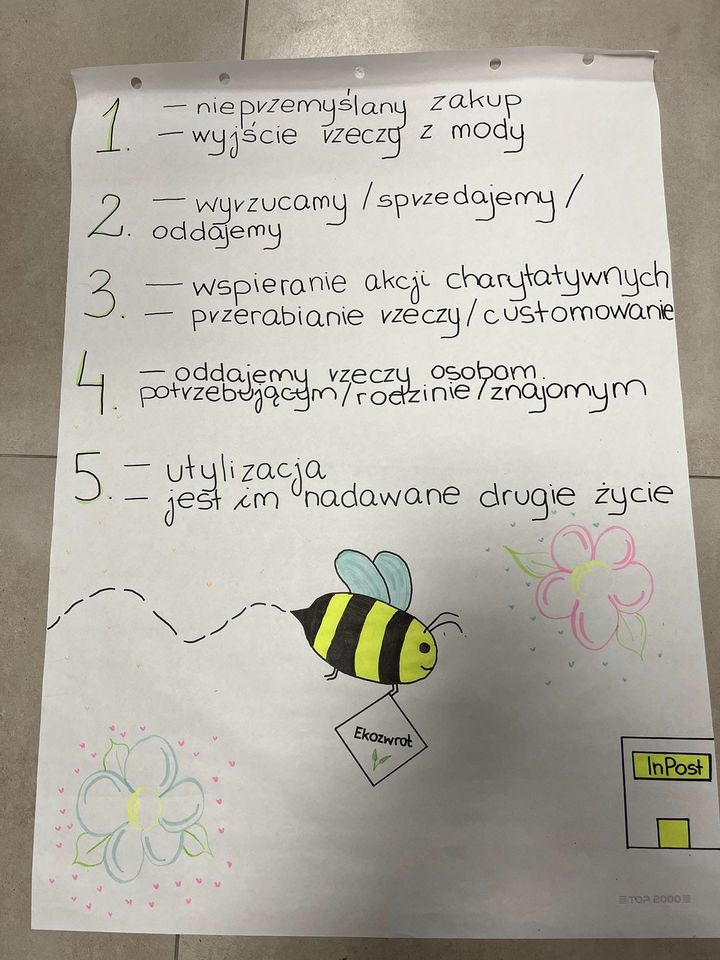 1. — nieprzemyślany zakup
— wyjście rzeczy z mody
2. — wyrzucamy / sprzedajemy /
oddajemy
3. — wspieranie akcji charytatywnych
— przerabianie rzeczy/customowanie
4. — oddajemy rzeczy osobom
potrzebującym/rodzinie/znajomym
5. — utylizacja
— jest im nadawane drugie życie
Ekozwrot
InPost
TOP 2000